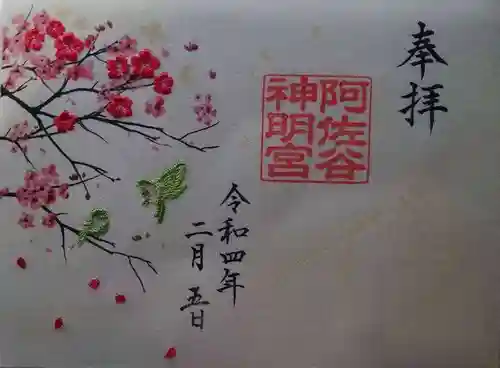 奉拝
阿佐谷
神明宮
令和四年
二月五日